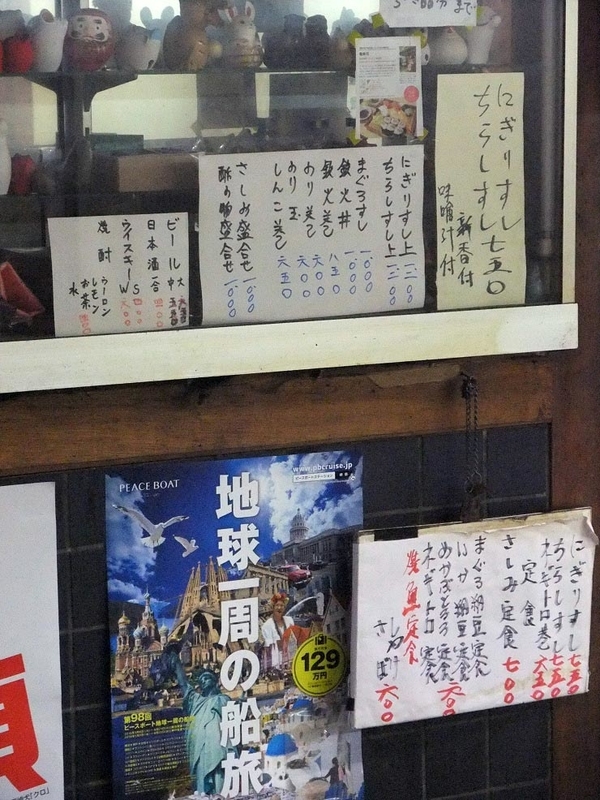 にぎりすし
ちらしすし七五〇
新香付
味噌汁付
にぎりすし上一、二〇〇
ちらしすし上一、二〇〇
まぐろすし一、〇〇〇
鉄火丼一、〇〇〇
鉄火巻八五〇
のり巻六〇〇
のり玉六〇〇
しんこ巻六五〇
さしみ盛合せ
酢の物盛合せ一、〇〇〇
ビール大
中
日本酒一合
ウイスキーWS
焼酎
ウーロン
レモン
お茶
水
PEACE BOAT
www.pbcruise.jp
地球一周の船旅
129
万円
第98回
ピースボート地球一周の船旅
にぎりすし七五〇
ちらしすし七五〇
ネギトロ巻六五〇
定食
さしみ定食七〇〇
まぐろ納豆定食
いか納豆定食
ネギトロ定食
焼魚定食
六〇〇